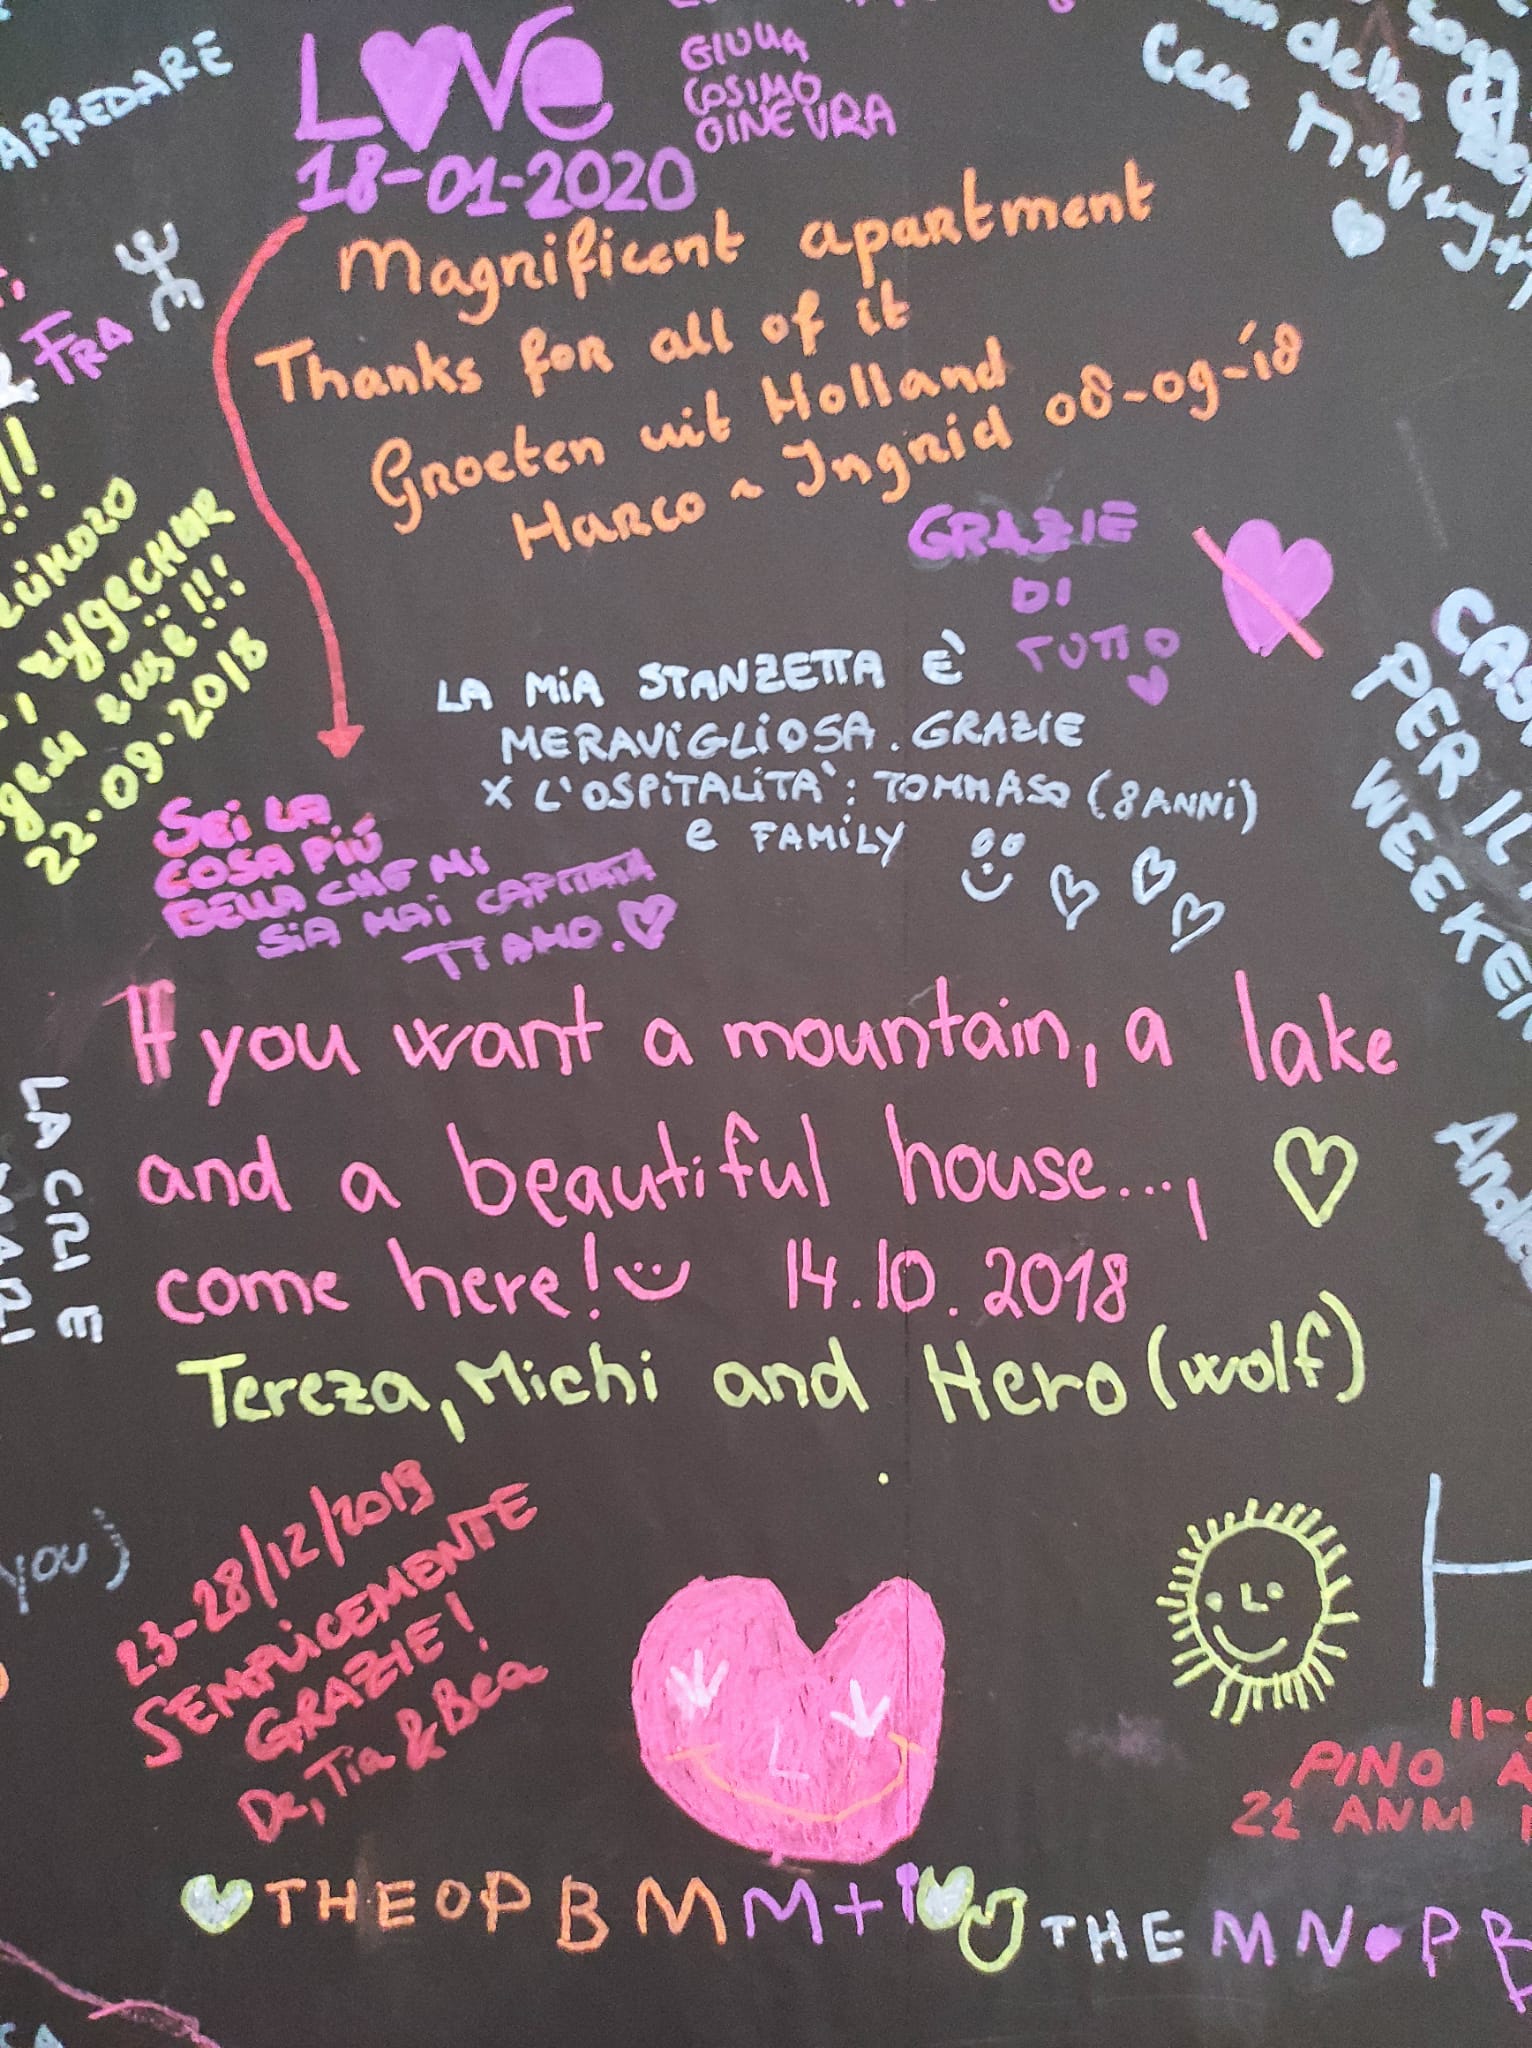 ARREDARE
LOVE
18-01-2020
GIULIA
COSIMO
GINEVRA
della
FRA
Magnificent apartment
Thanks for all of it
Groeten uit Holland
Harco ~ Ingrid 08-09-'18
22.09.2018
GRAZIE
DI
TUTTO
LA MIA STANZETTA È
MERAVIGLIOSA. GRAZIE
X L'OSPITALITÀ: TOMMASO (8 ANNI)
e FAMILY
SEI LA
COSA PIÚ
BELLA CHE MI
SIA MAI CAPITATA
TI AMO.
PER IL
If you want a mountain, a lake
and a beautiful house...,
come here! 14.10.2018
Tereza, Michi and Hero (wolf)
LA CRI E
YOU)
23-28/12/2019
SEMPLICEMENTE
GRAZIE!
De, Tia & Bea
PINO
21 ANNI
THEOPBMM+i
THEMNOPB